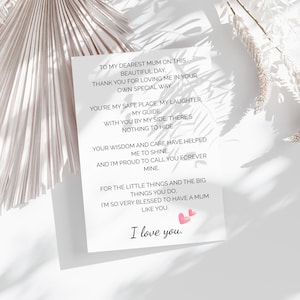 TO MY DEAREST MUM ON THIS
BEAUTIFUL DAY,
THANK YOU FOR LOVING ME IN YOUR
OWN SPECIAL WAY.
YOU'RE MY SAFE PLACE, MY LAUGHTER,
MY GUIDE,
WITH YOU BY MY SIDE, THERE'S
NOTHING TO HIDE.
YOUR WISDOM AND CARE HAVE HELPED
ME TO SHINE,
AND I'M PROUD TO CALL YOU FOREVER
MINE.
FOR THE LITTLE THINGS AND THE BIG
THINGS YOU DO,
I'M SO VERY BLESSED TO HAVE A MUM
LIKE YOU.
I love you.